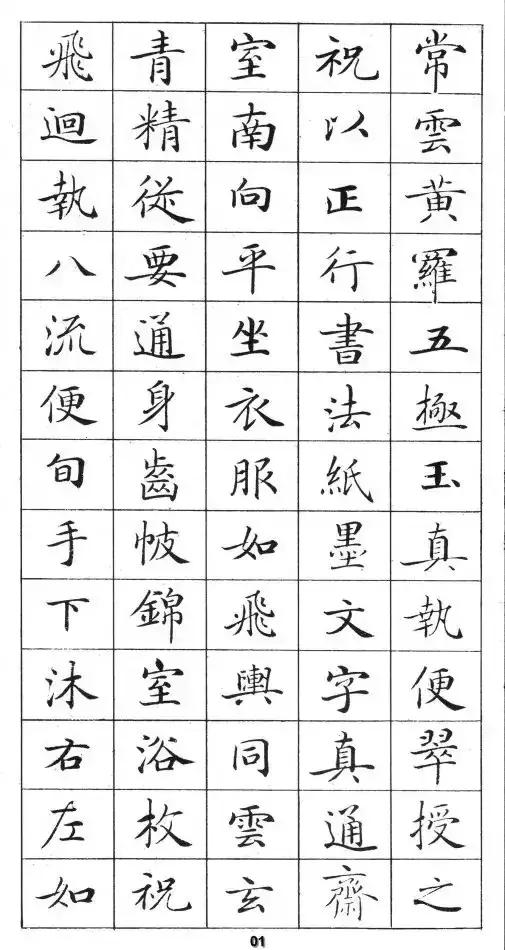 常雲黄羅五極玉真執便翠授之
祝以正行書法紙墨文字真通齋
室南向平坐衣服如飛輿同雲玄
青精從要通身齒帔錦室浴枚祝
飛迴執八流便旬手下沐右左如
01